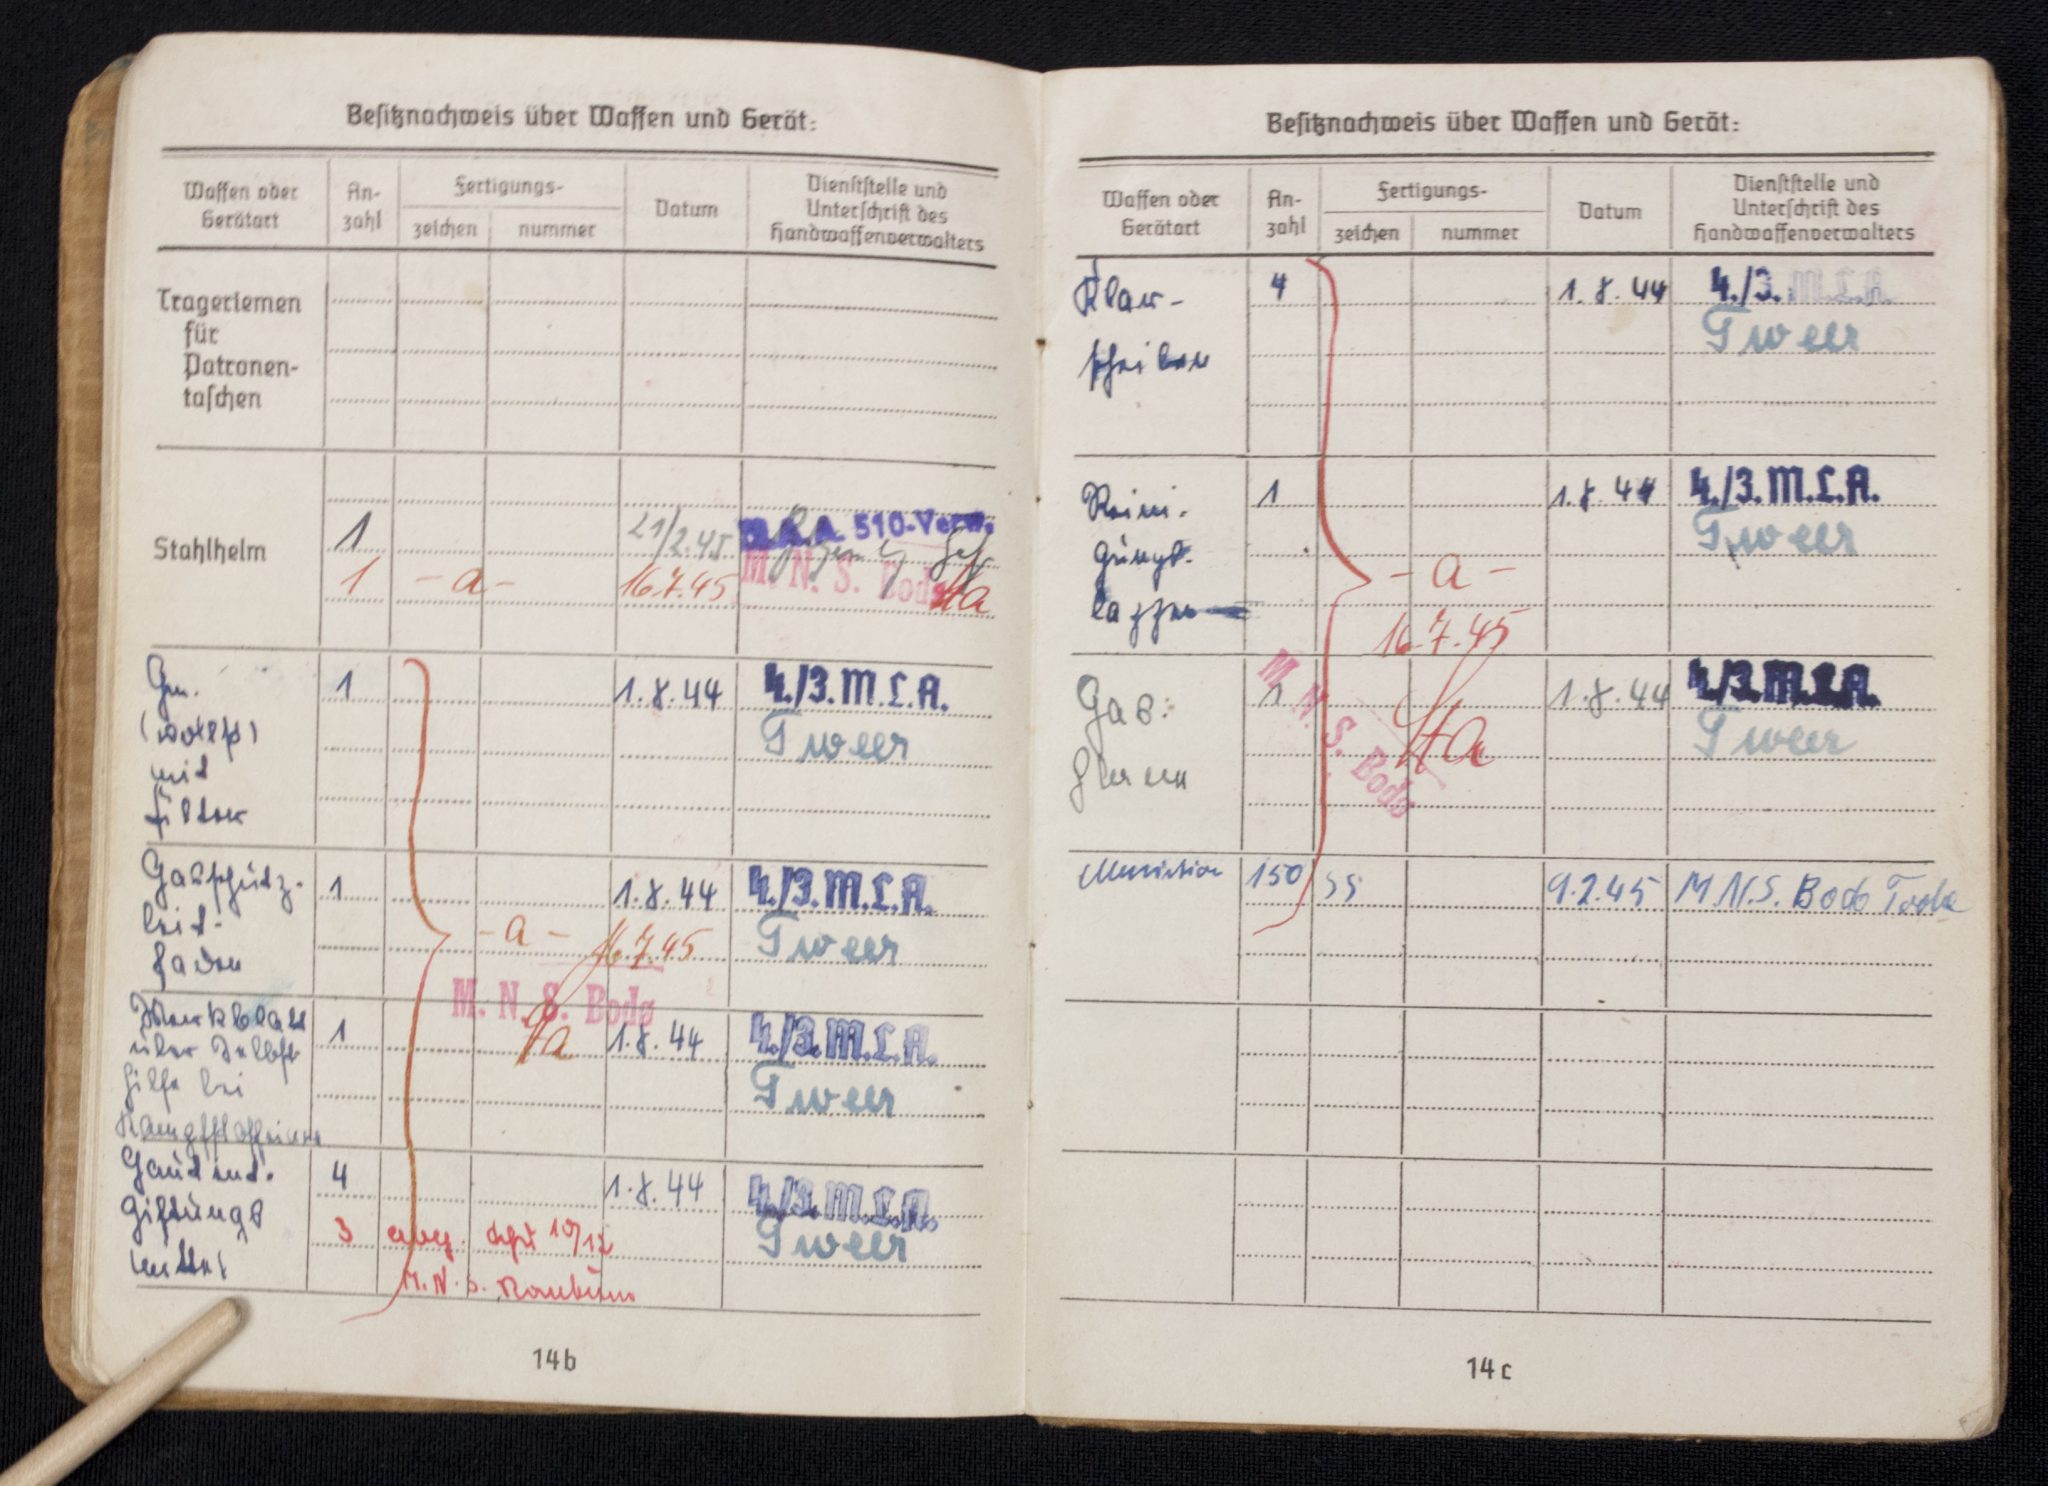 Besitznachweis über Waffen und Gerät:
Waffen oder
Gerätart
An-
zahl
Fertigungs-
zeichen
nummer
Datum
Dienststelle und
Unterschrift des
Handwaffenverwalters
Trageriemen
für
Patronen-
taschen
Stahlhelm
1
21/2.45
510-Verw.
1 - a - 16.7.45
M. N. S. Bodø
Gm.
mit
Filter
1
1.8.44
4./3. M.L.A.
Tweer
Gasschutz-
leit-
faden
1
1.8.44
4./3. M.L.A.
Tweer
- a - 16.7.45
M. N. S. Bodø
Merkblatt
über Selbst
hilfe bei
1
1.8.44
4./3. M.L.A.
Tweer
Hautent-
giftungs
mittel
4
1.8.44
4./3. M.L.A.
Tweer
3
M.N.S.
14b
Besitznachweis über Waffen und Gerät:
Waffen oder
Gerätart
An-
zahl
Fertigungs-
zeichen
nummer
Datum
Dienststelle und
Unterschrift des
Handwaffenverwalters
Klar-
scheiben
4
1.8.44
4./3. M.L.A.
Tweer
Reini-
gungs-
lappen
1
1.8.44
4./3. M.L.A.
Tweer
- a -
16.7.45
Gas-
1
1.8.44
4./3. M.L.A.
Tweer
M. N. S. Bodø
Munition 150 SS 9.2.45 M.N.S. Bodo
14c